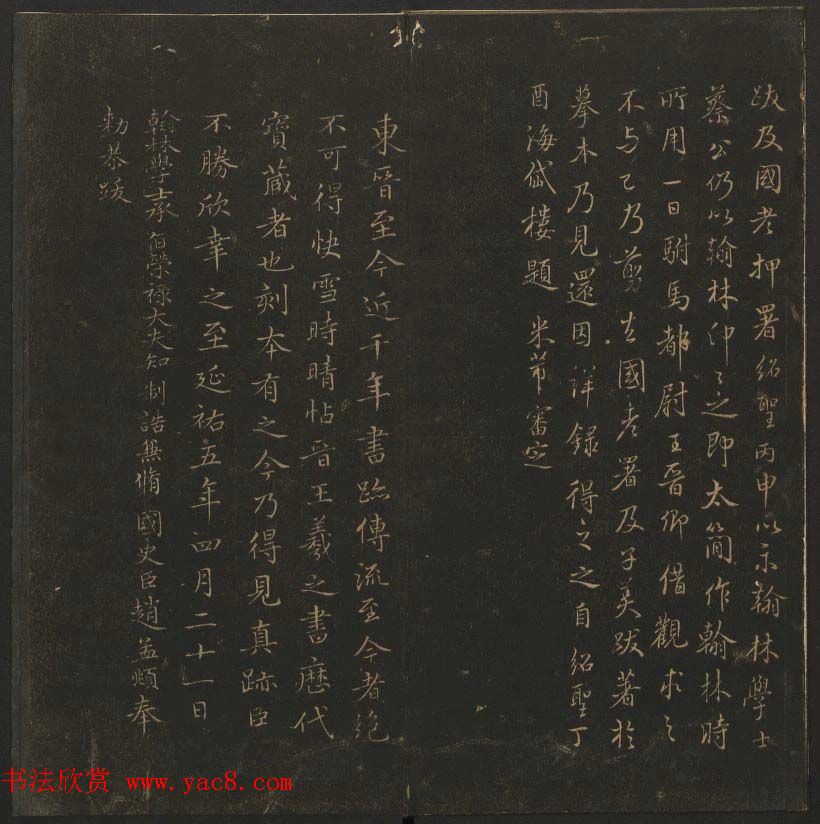 跋及國老押署紹聖丙申以示翰林學士
蔡公仍以翰林印之即太簡作翰林時
所用一日駙馬都尉王晉卿借觀求之
不与已乃剪去國老署及子美跋著於
摹本乃見還因詳錄得之之自紹聖丁
酉海岱樓題 米芾審定
東晉至今近千年書跡傳流至今者絶
不可得快雪時晴帖晉王羲之書歷代
寶藏者也刻本有之今乃得見真跡臣
不勝欣幸之至延祐五年四月二十一日
翰林學士承旨榮祿大夫知制誥兼脩國史臣趙孟頫奉
勅恭跋
书法欣赏 www.yac8.com